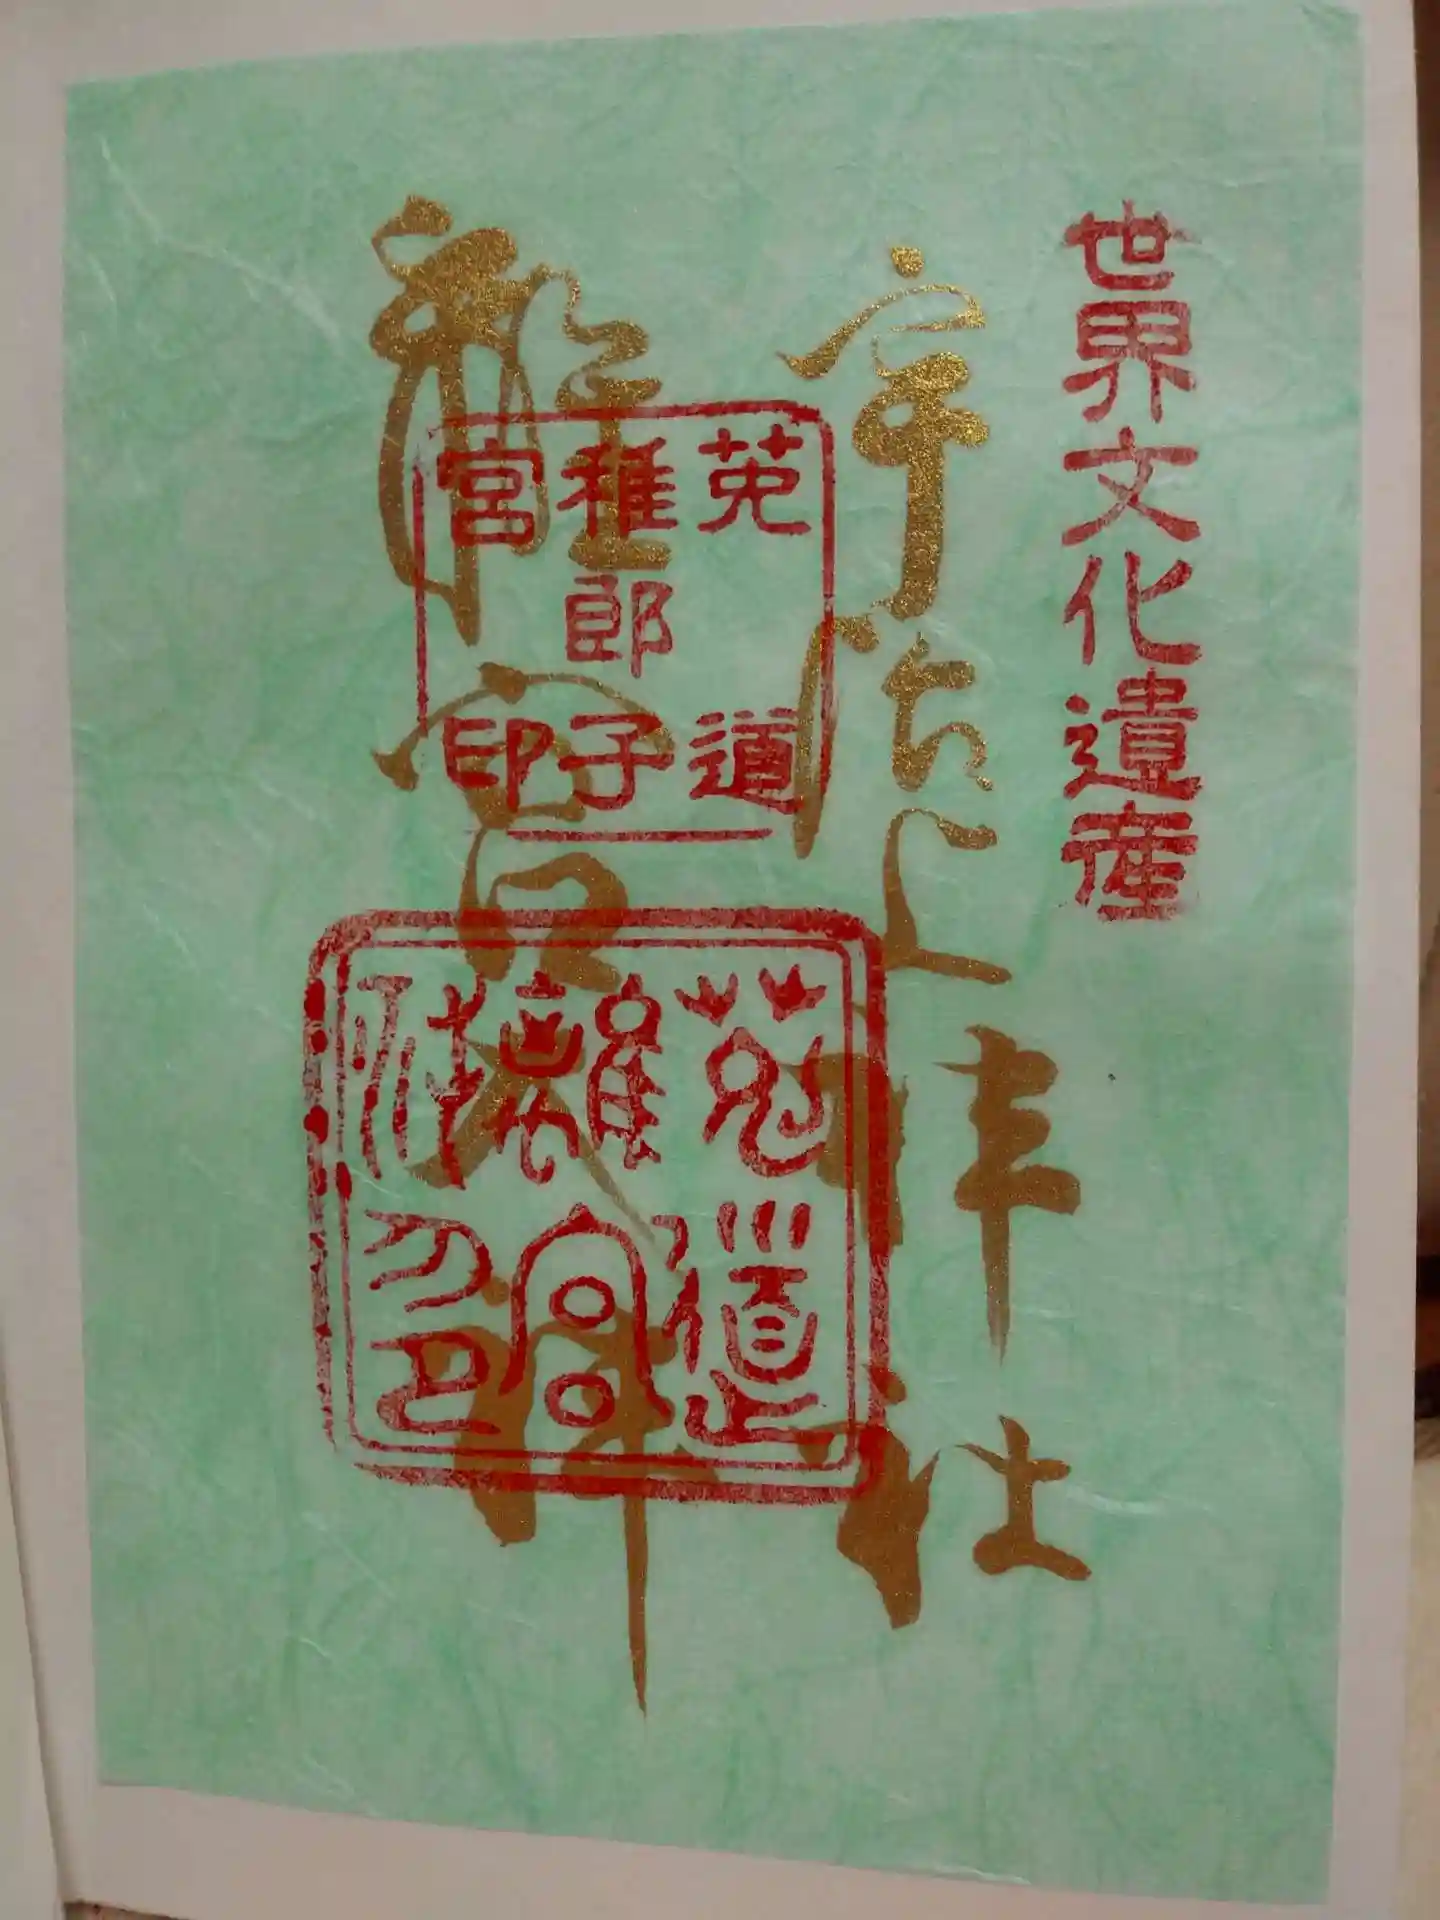 世界文化遺産
宇治上神社
離宮大神
莵道
稚郎子
宮印
莵道
離宮
社印